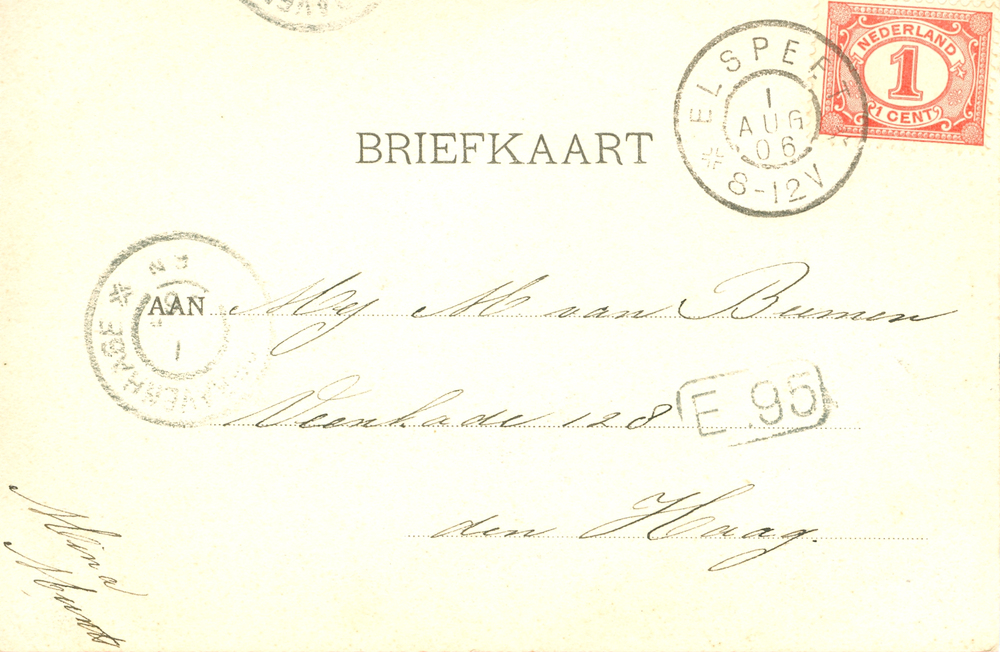 NEDERLAND
1
1 CENT
ELSPEET
1
AUG
06
8-12V
BRIEFKAART
AAN Mej M van Beemen
Veenkade 128
E 95
den Haag.
Mina